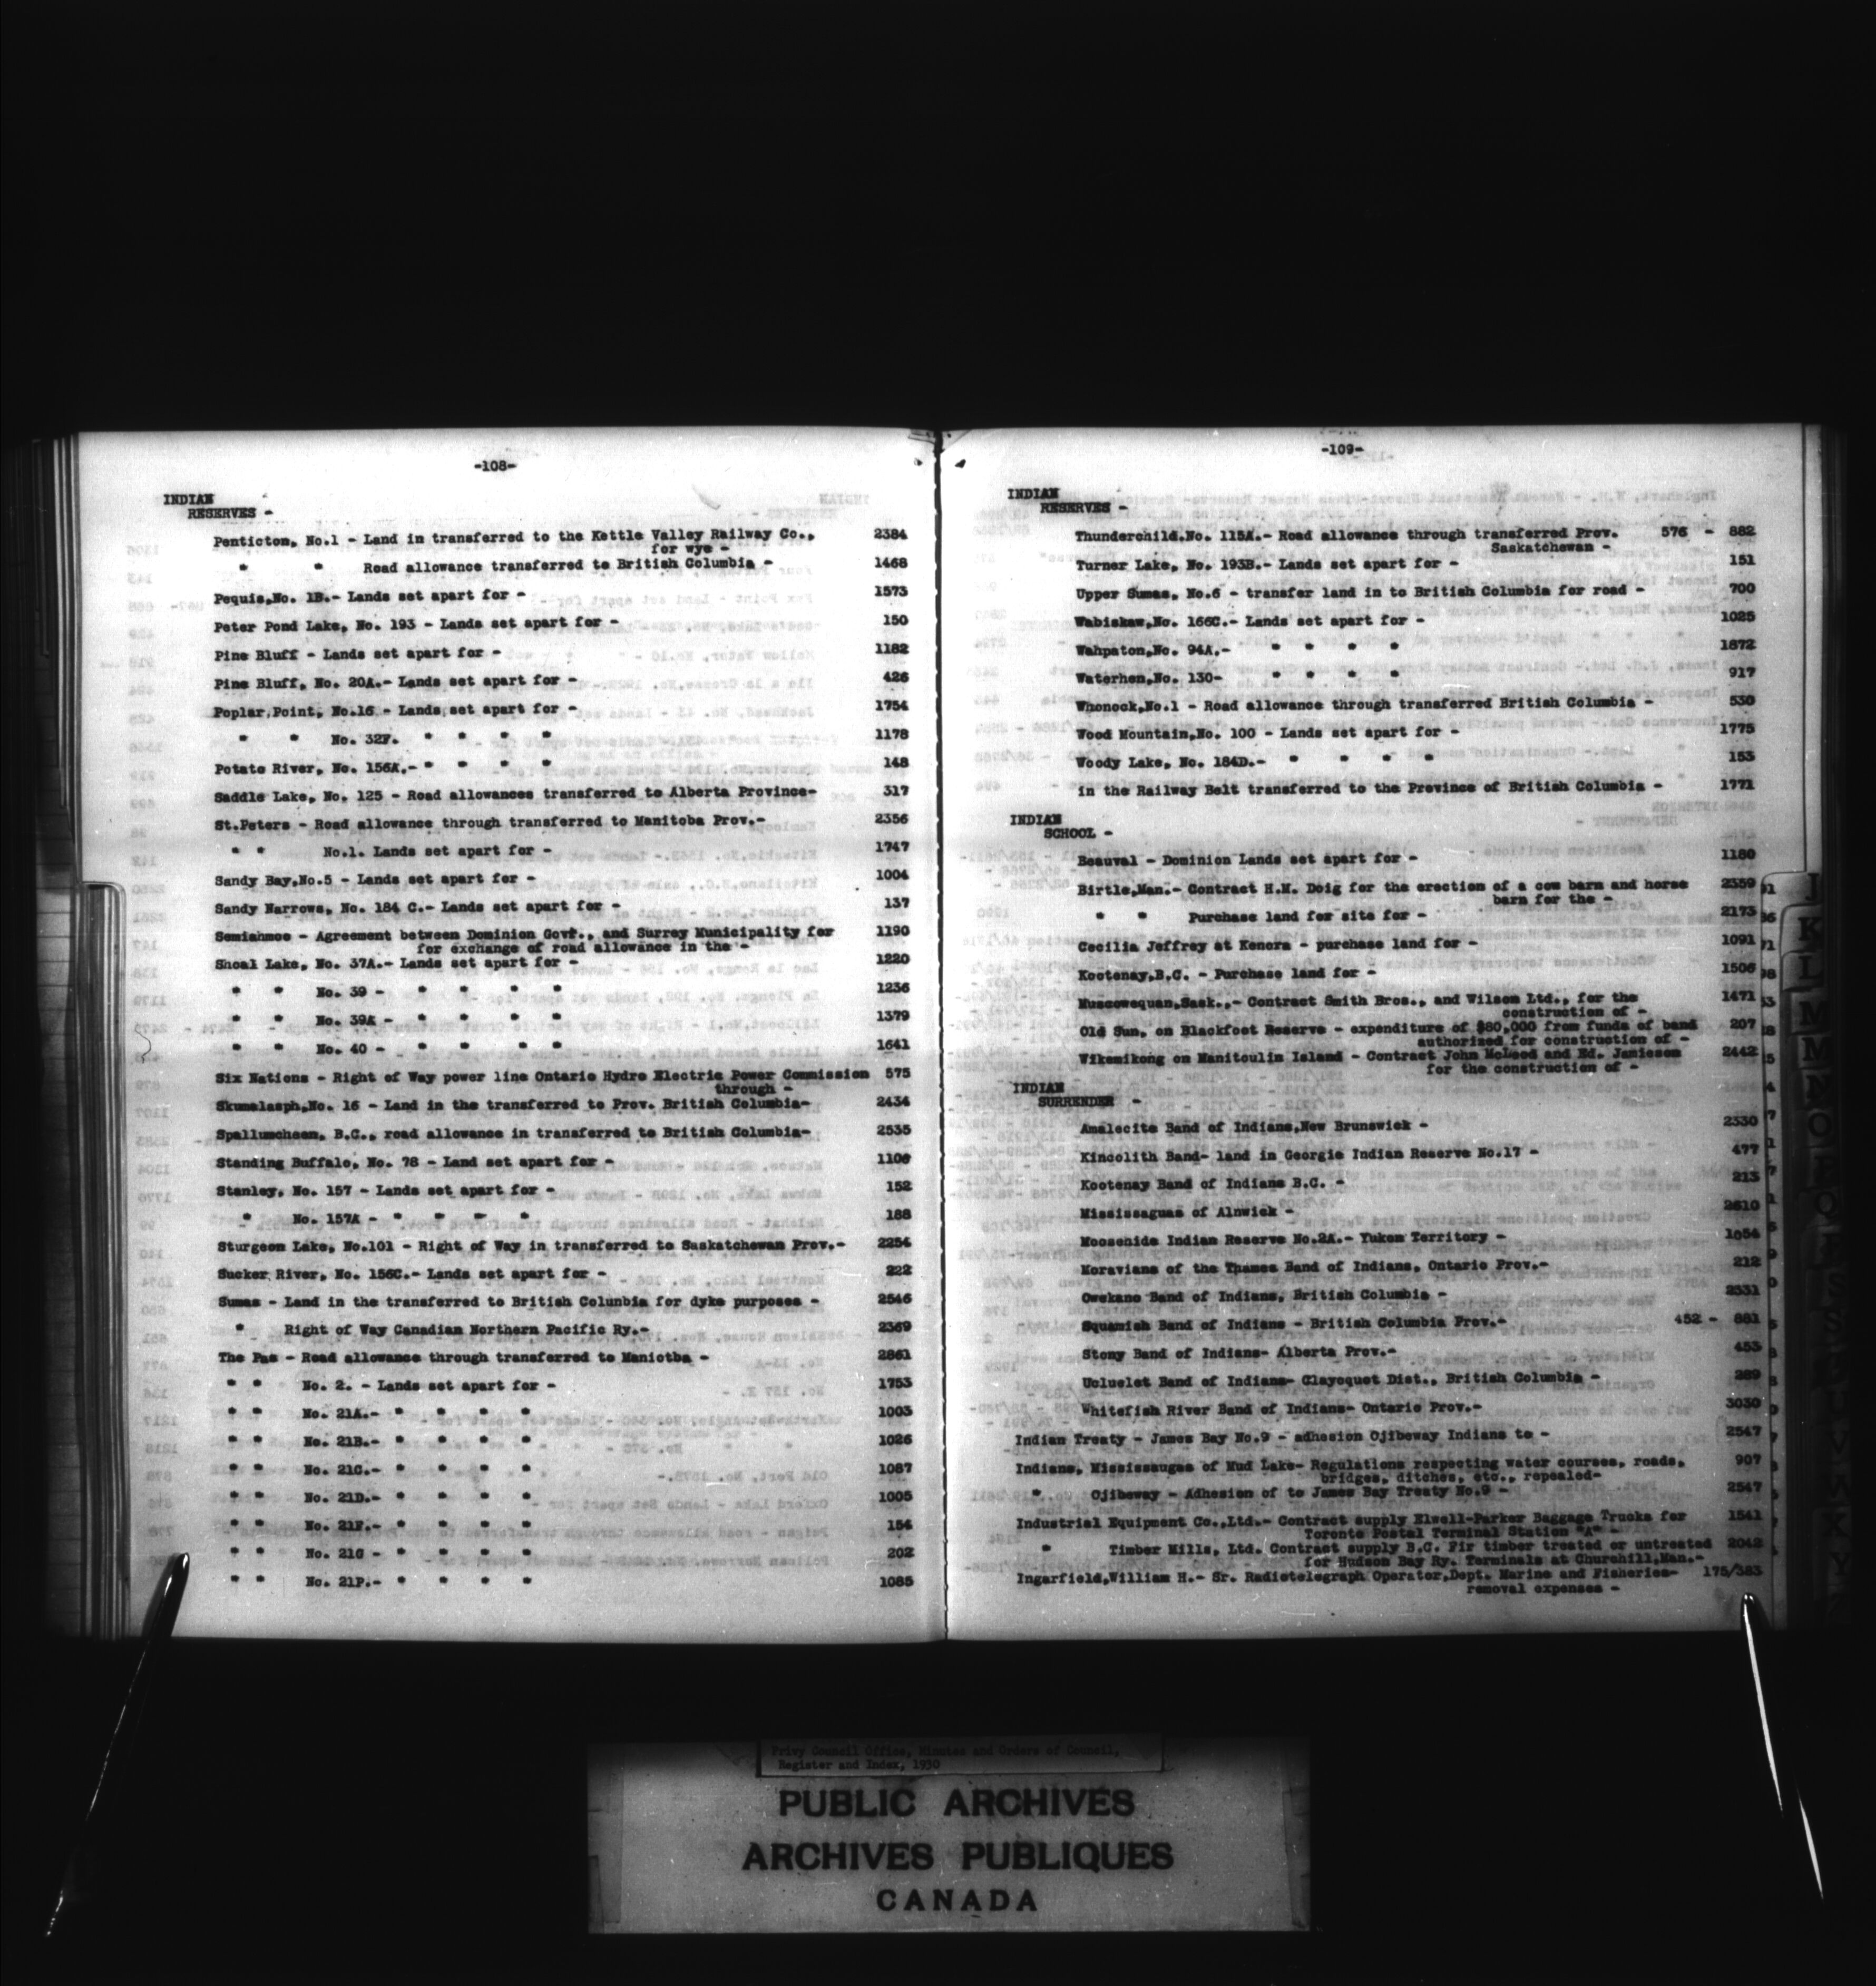 -108-
INDIAN
RESERVES -
Penticton, No.1 - Land in transferred to the Kettle Valley Railway Co., 2384
for wye -
" " Road allowance transferred to British Columbia - 1468
Pequis,No. 1B.- Lands set apart for - 1573
Peter Pond Lake, No. 193 - Lands set apart for - 150
Pine Bluff - Lands set apart for - 1182
Pine Bluff, No. 20A.- Lands set apart for - 426
Poplar Point, No.16 - Lands set apart for - 1754
" " No. 32F. " " " " 1178
Potato River, No. 156A.- " " " " 148
Saddle Lake, No. 125 - Road allowances transferred to Alberta Province- 317
St.Peters - Road allowance through transferred to Manitoba Prov.- 2356
" " No.1. Lands set apart for - 1747
Sandy Bay,No.5 - Lands set apart for - 1004
Sandy Narrows, No. 184 C.- Lands set apart for - 137
Semiahmoo - Agreement between Dominion Govt., and Surrey Municipality for 1190
for exchange of road allowance in the -
Shoal Lake, No. 37A.- Lands set apart for - 1220
" " No. 39 - " " " " 1236
" " No. 39A - " " " " 1379
" " No. 40 - " " " " 1641
Six Nations - Right of Way power line Ontario Hydro Electric Power Commission 575
through -
Skumalasph,No. 16 - Land in the transferred to Prov. British Columbia- 2434
Spallumcheen, B.C., road allowance in transferred to British Columbia- 2535
Standing Buffalo, No. 78 - Land set apart for - 1106
Stanley, No. 157 - Lands set apart for - 152
" No. 157A - " " " " 188
Sturgeon Lake, No.101 - Right of Way in transferred to Saskatchewan Prov.- 2254
Sucker River, No. 156C.- Lands set apart for - 222
Sumas - Land in the transferred to British Colunbia for dyke purposes - 2546
" Right of Way Canadian Northern Pacific Ry.- 2369
The Pas - Road allowance through transferred to Maniotba - 2861
" " No. 2. - Lands set apart for - 1753
" " No. 21A.- " " " " 1003
" " No. 21B.- " " " " 1026
" " No. 21C.- " " " " 1087
" " No. 21D.- " " " " 1005
" " No. 21F.- " " " " 154
" " No. 21G - " " " " 202
" " No. 21P.- " " " " 1085
-109-
INDIAN
RESERVES -
Thunderchild,No. 115A.- Road allowance through transferred Prov. 576 - 882
Saskatchewan -
Turner Lake, No. 193B.- Lands set apart for - 151
Upper Sumas, No.6 - transfer land in to British Columbia for road - 700
Wabiskaw,No. 166C.- Lands set apart for - 1025
Wahpaton,No. 94A.- " " " " 1872
Waterhen,No. 130- " " " " 917
Whonock,No.1 - Road allowance through transferred British Columbia - 530
Wood Mountain,No. 100 - Lands set apart for - 1775
Woody Lake, No. 184D.- " " " " 153
in the Railway Belt transferred to the Province of British Columbia - 1771
INDIAN
SCHOOL -
Beauval - Dominion Lands set apart for - 1180
Birtle,Man.- Contract H.M. Doig for the erection of a cow barn and horse 2359
barn for the -
" " Purchase land for site for - 2173
Cecilia Jeffrey at Kenora - purchase land for - 1091
Kootenay,B.C. - Purchase land for - 1506
Muscowequan,Sask.,- Contract Smith Bros., and Wilson Ltd., for the 1471
construction of -
Old Sun, on Blackfoot Reserve - expenditure of $80,000 from funds of band 207
authorized for construction of -
Wikemikong on Manitoulin Island - Contract John McLeod and Ed. Jamieson 2442
for the construction of -
INDIAN
SURRENDER -
Amalecite Band of Indians,New Brunswick - 2330
Kincolith Band- land in Georgie Indian Reserve No.17 - 477
Kootenay Band of Indians B.C. - 213
Mississaguas of Alnwick - 2610
Moosehide Indian Reserve No.2A.- Yukon Territory - 1054
Moravians of the Thames Band of Indians, Ontario Prov.- 212
Owekano Band of Indians, British Columbia - 2331
Squamish Band of Indians - British Columbia Prov.- 452 - 881
Stony Band of Indians- Alberta Prov.- 453
Ucluelet Band of Indians- Clayoquot Dist., British Columbia - 289
Whitefish River Band of Indians- Ontario Prov.- 3030
Indian Treaty - James Bay No.9 - adhesion Ojibeway Indians to - 2547
Indians, Mississaugas of Mud Lake- Regulations respecting water courses, roads, 907
bridges, ditches, etc., repealed-
" Ojibeway - Adhesion of to James Bay Treaty No.9 - 2547
Industrial Equipment Co.,Ltd.- Contract supply Elwell-Parker Baggage Trucks for 1541
Toronto Postal Terminal Station "A" -
" Timber Mills, Ltd. Contract supply B.C. Fir timber treated or untreated 2042
for Hudson Bay Ry. Terminals at Churchill,Man.-
Ingarfield,William H.- Sr. Radiotelegraph Operator,Dept. Marine and Fisheries- 175/383
removal expenses -
Privy Council Office, Minutes and Orders of Council,
Register and Index, 1930
PUBLIC ARCHIVES
ARCHIVES PUBLIQUES
CANADA